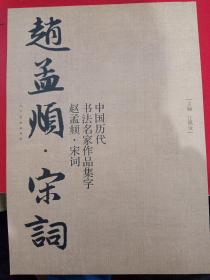 趙孟頫·宋詞
中国历代
书法名家作品集字
赵孟頫·宋词